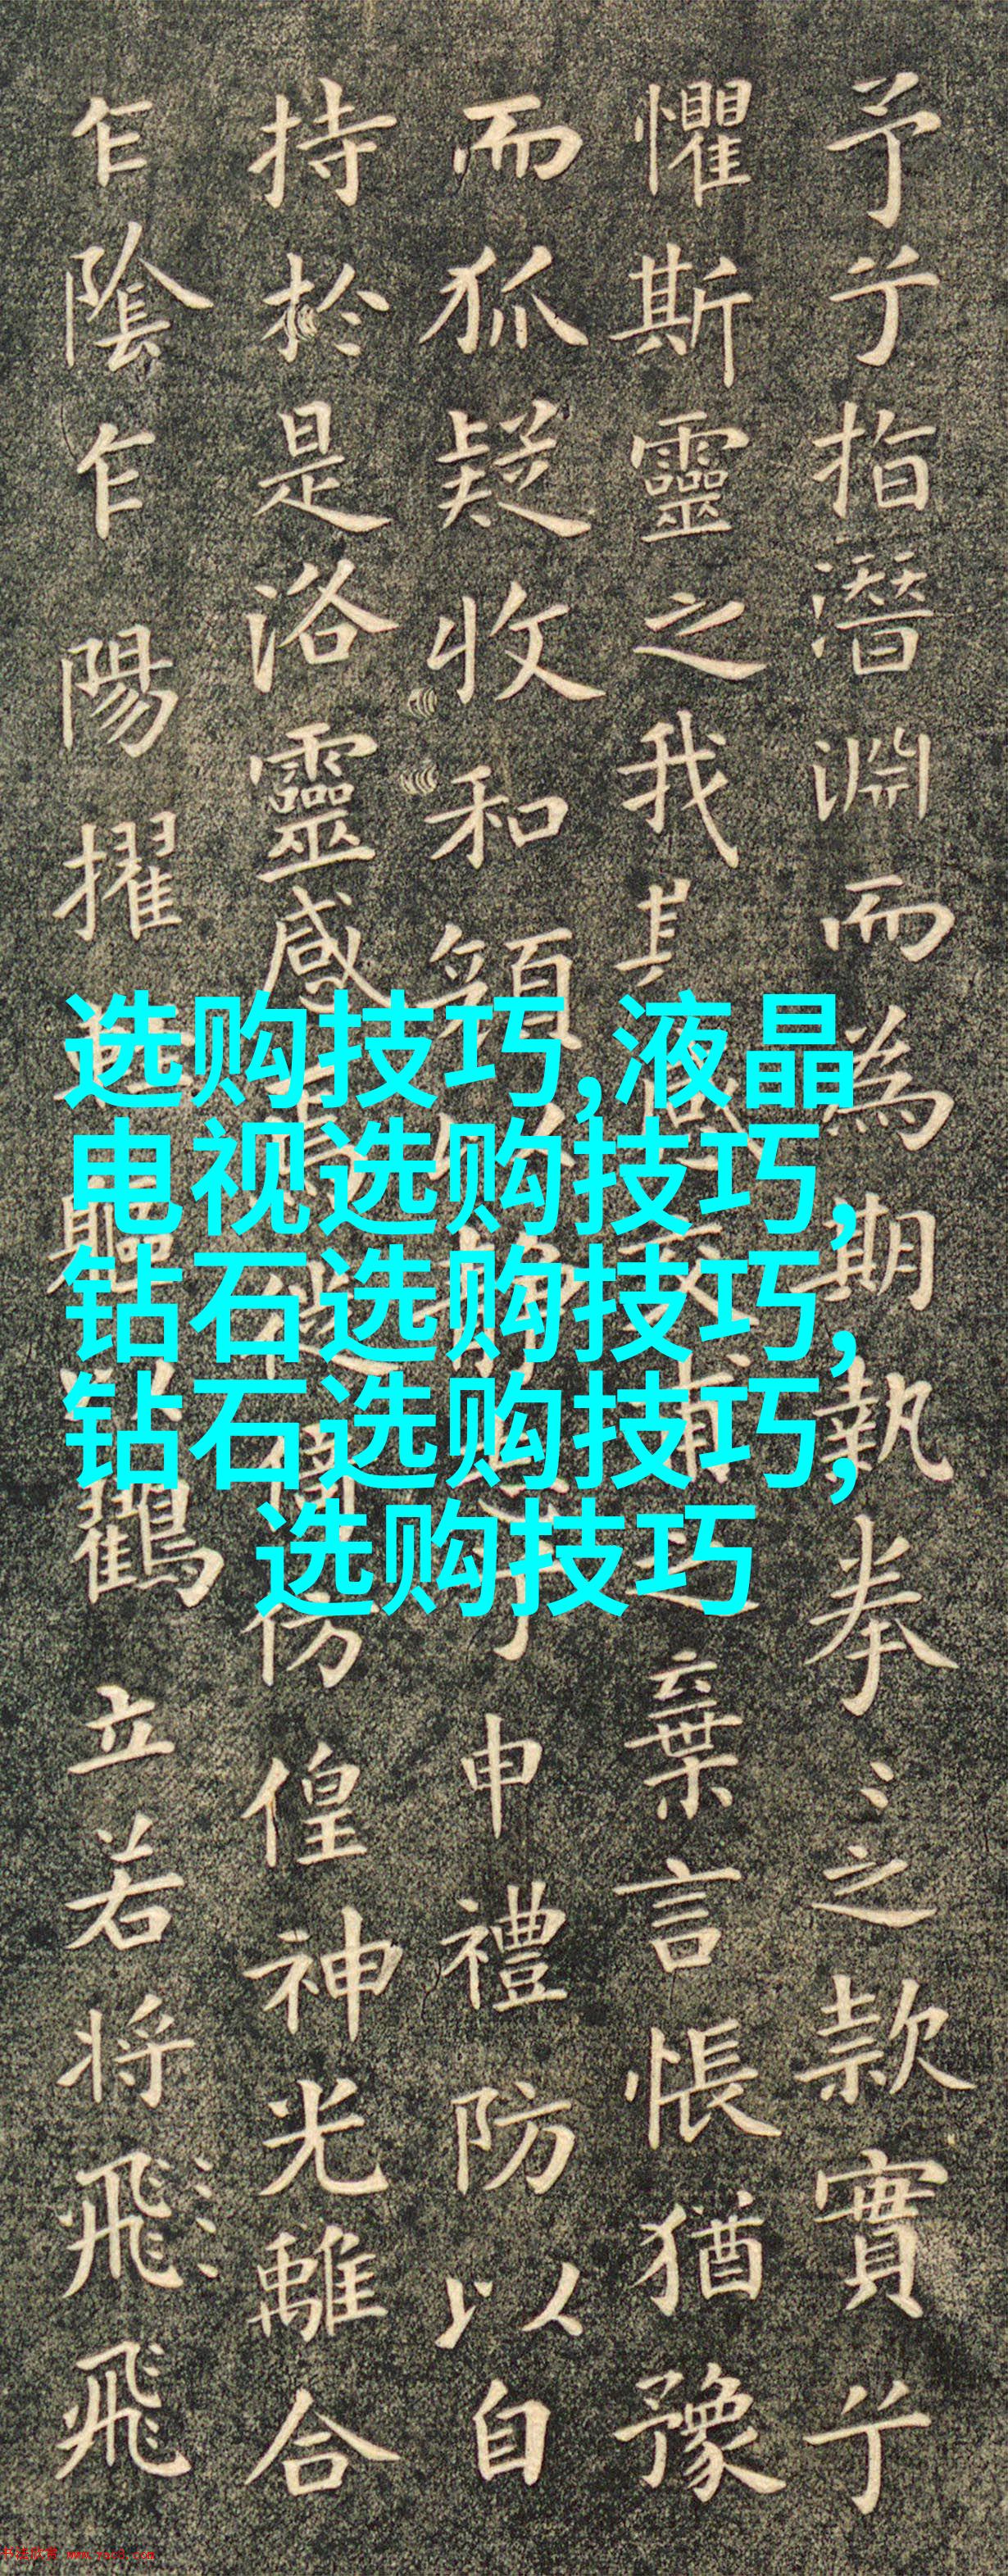 予兮指潛淵而為期執拳〻之款實兮
懼斯靈之我棄言悵猶豫
而狐疑收和顏申禮防以自
持於是洛靈感傍偟神光離合
乍陰乍陽擢軀鶴立若將飛飛
选购技巧,液晶
电视选购技巧,
钻石选购技巧,
钻石选购技巧,
选购技巧